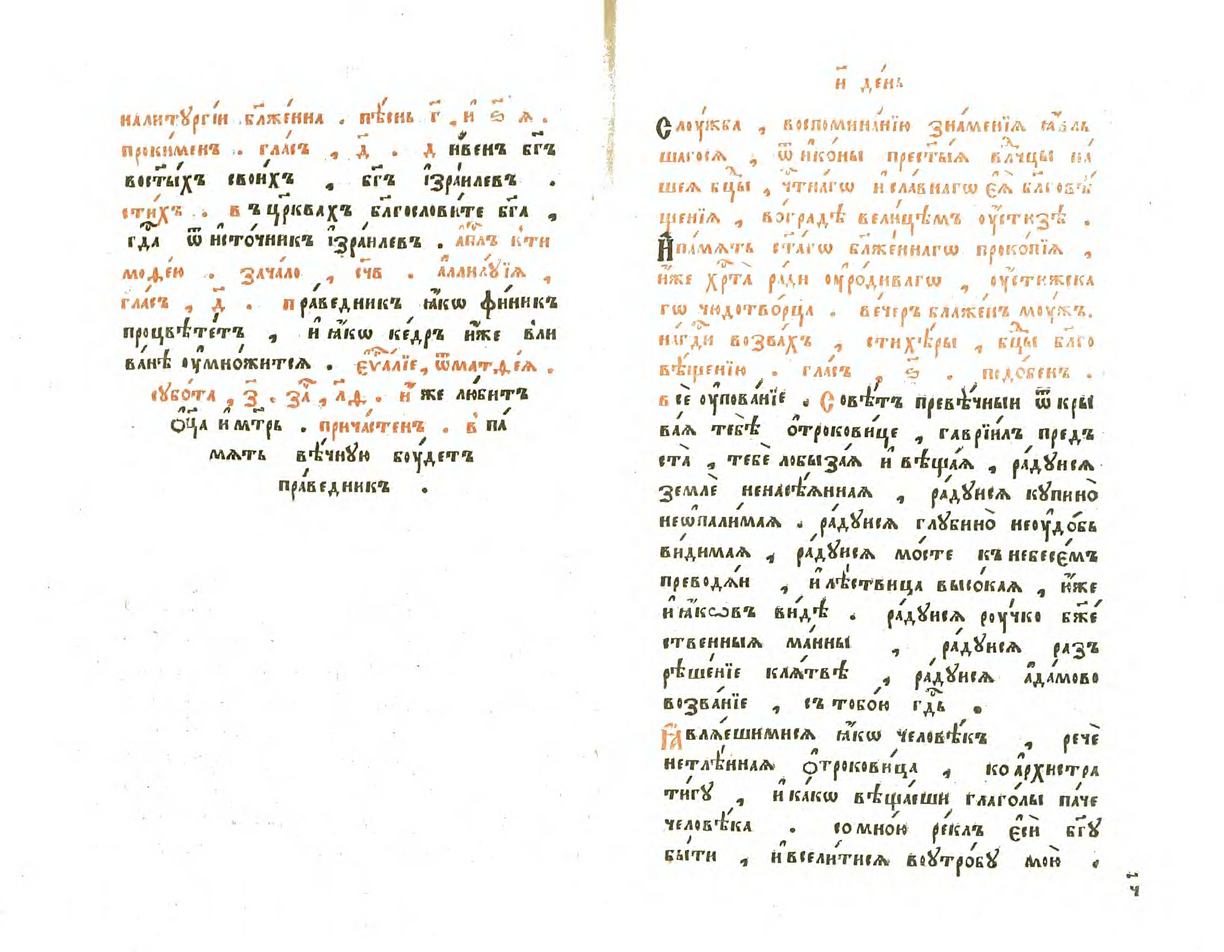 налитꙋргі́и бл҃же́нна . пѣ́снь г҃ , и҆ ѕ҃ ѧ .
проки́менъ . гла́съ , д҃ . ди́венъ бг҃ъ
восты́хъ свои́хъ , бг҃ъ і҆зра́илевъ .
сти́хъ . въ цр҃квахъ бл҃гослови́те бг҃а ,
гдⷭ҇а ѿ и҆сто́чникъ і҆зра́илевъ . а҆пⷭ҇лъ к̾ти
моѳе́ю . зача́ло , сч҃в . аллилꙋ́їѧ ,
гла́съ , д҃ . пра́ведникъ ꙗ҆́кѡ фи́никъ
процвѣте́тъ , и҆ ꙗ҆́кѡ ке́дръ и҆́же в̾ли
ва́нѣ оу҆мно́житсѧ . є҆ѵⷢ҇а́лїе , ѿматѳе́ѧ .
сꙋбо́та , з҃ . за҃ , л҃д . и҆́же лю́битъ
ѻ҆ц҃а и҆ мт҃рь . прича́стенъ . в̾ па́
мѧть вѣ́чнꙋю боу́детъ
пра́ведникъ .
и҃ де́нь
Слоу́жба , воспомина́нїю зна́менїѧ ꙗ҆́вль
шагосѧ , ѿ ико́ны прест҃ы́ѧ влⷣчцы на́
шеѧ бцⷣы , чтⷭ҇на́гѡ и҆ сла́внагѡ є҆ѧ̀ бл҃говѣ́
щенїѧ , во гра́дѣ вели́цѣмъ оу҆́стюзѣ .
И҆па́мѧть ст҃а́гѡ бл҃же́ннагѡ проко́пїѧ ,
и҆́же хрⷭ҇та̀ ра́ди оу҆ро́диваго , оу҆́стюжска
гѡ чюдотво́рца . ве́черъ блаже́нъ моу́жъ .
на гдⷭ҇и возва́хъ , стихѣ́ры , бцⷣы бл҃го
вѣ́щенїю . гла́съ , ѕ҃ . подо́бенъ .
всѐ оу҆пова́нїе . Совѣ́тъ превѣ́чныи ѿкры
ва́ѧ тебѣ̀ ѻ҆трокови́це , гаврїи́лъ предъ
ста̀ , тебѐ лобыза́ѧ и҆ вѣща́ѧ , ра́дꙋисѧ
землѐ ненасѣ́ѧннаѧ , ра́дꙋисѧ кꙋпино̀
неѡпали́маѧ . ра́дꙋисѧ глꙋбино̀ неоудо́бь
ви́димаѧ , ра́дꙋисѧ мо́сте къ небесє́мъ
преводѧ́и , и҆ лѣ́ствица высо́каѧ , ю҆́же
и҆ ꙗ҆́ковъ ви́дѣ . ра́дꙋисѧ роу́чко бж҃е́
ственныѧ ма́нны , ра́дꙋисѧ раз
рѣше́нїе клѧ́твѣ , ра́дꙋисѧ а҆да́мово
возва́нїе , съ тобо́ю гдⷭ҇ь .
Ꙗ҆влѧ́ешимисѧ ꙗ҆́кѡ человѣ́къ , речѐ
нетлѣ́ннаѧ ѻ҆трокови́ца , ко архистра
ти́гꙋ , и҆ ка́кѡ вѣща́еши глаго́лы па́че
человѣ́ка . со мно́ю ре́клъ є҆сѝ бг҃ꙋ
бы́ти , и҆ всели́тисѧ воутро́бꙋ мою̀ .
ч҃